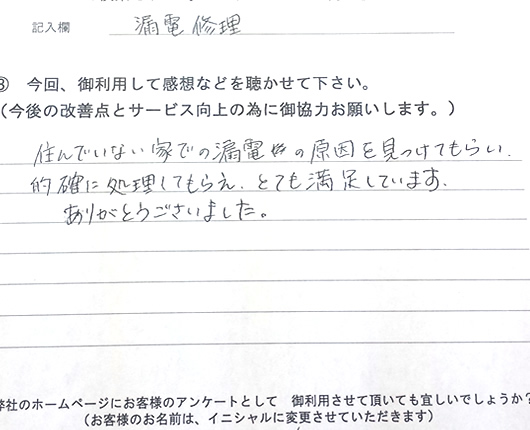 記入欄 漏電修理
③ 今回、御利用して感想などを聴かせて下さい。
(今後の改善点とサービス向上の為に御協力お願いします。)
住んでいない家での漏電の原因を見つけてもらい、
的確に処理してもらえ、とても満足しています。
ありがとうございました。
弊社のホームページにお客様のアンケートとして 御利用させて頂いても宜しいでしょうか?
(お客様のお名前は、イニシャルに変更させていただきます)